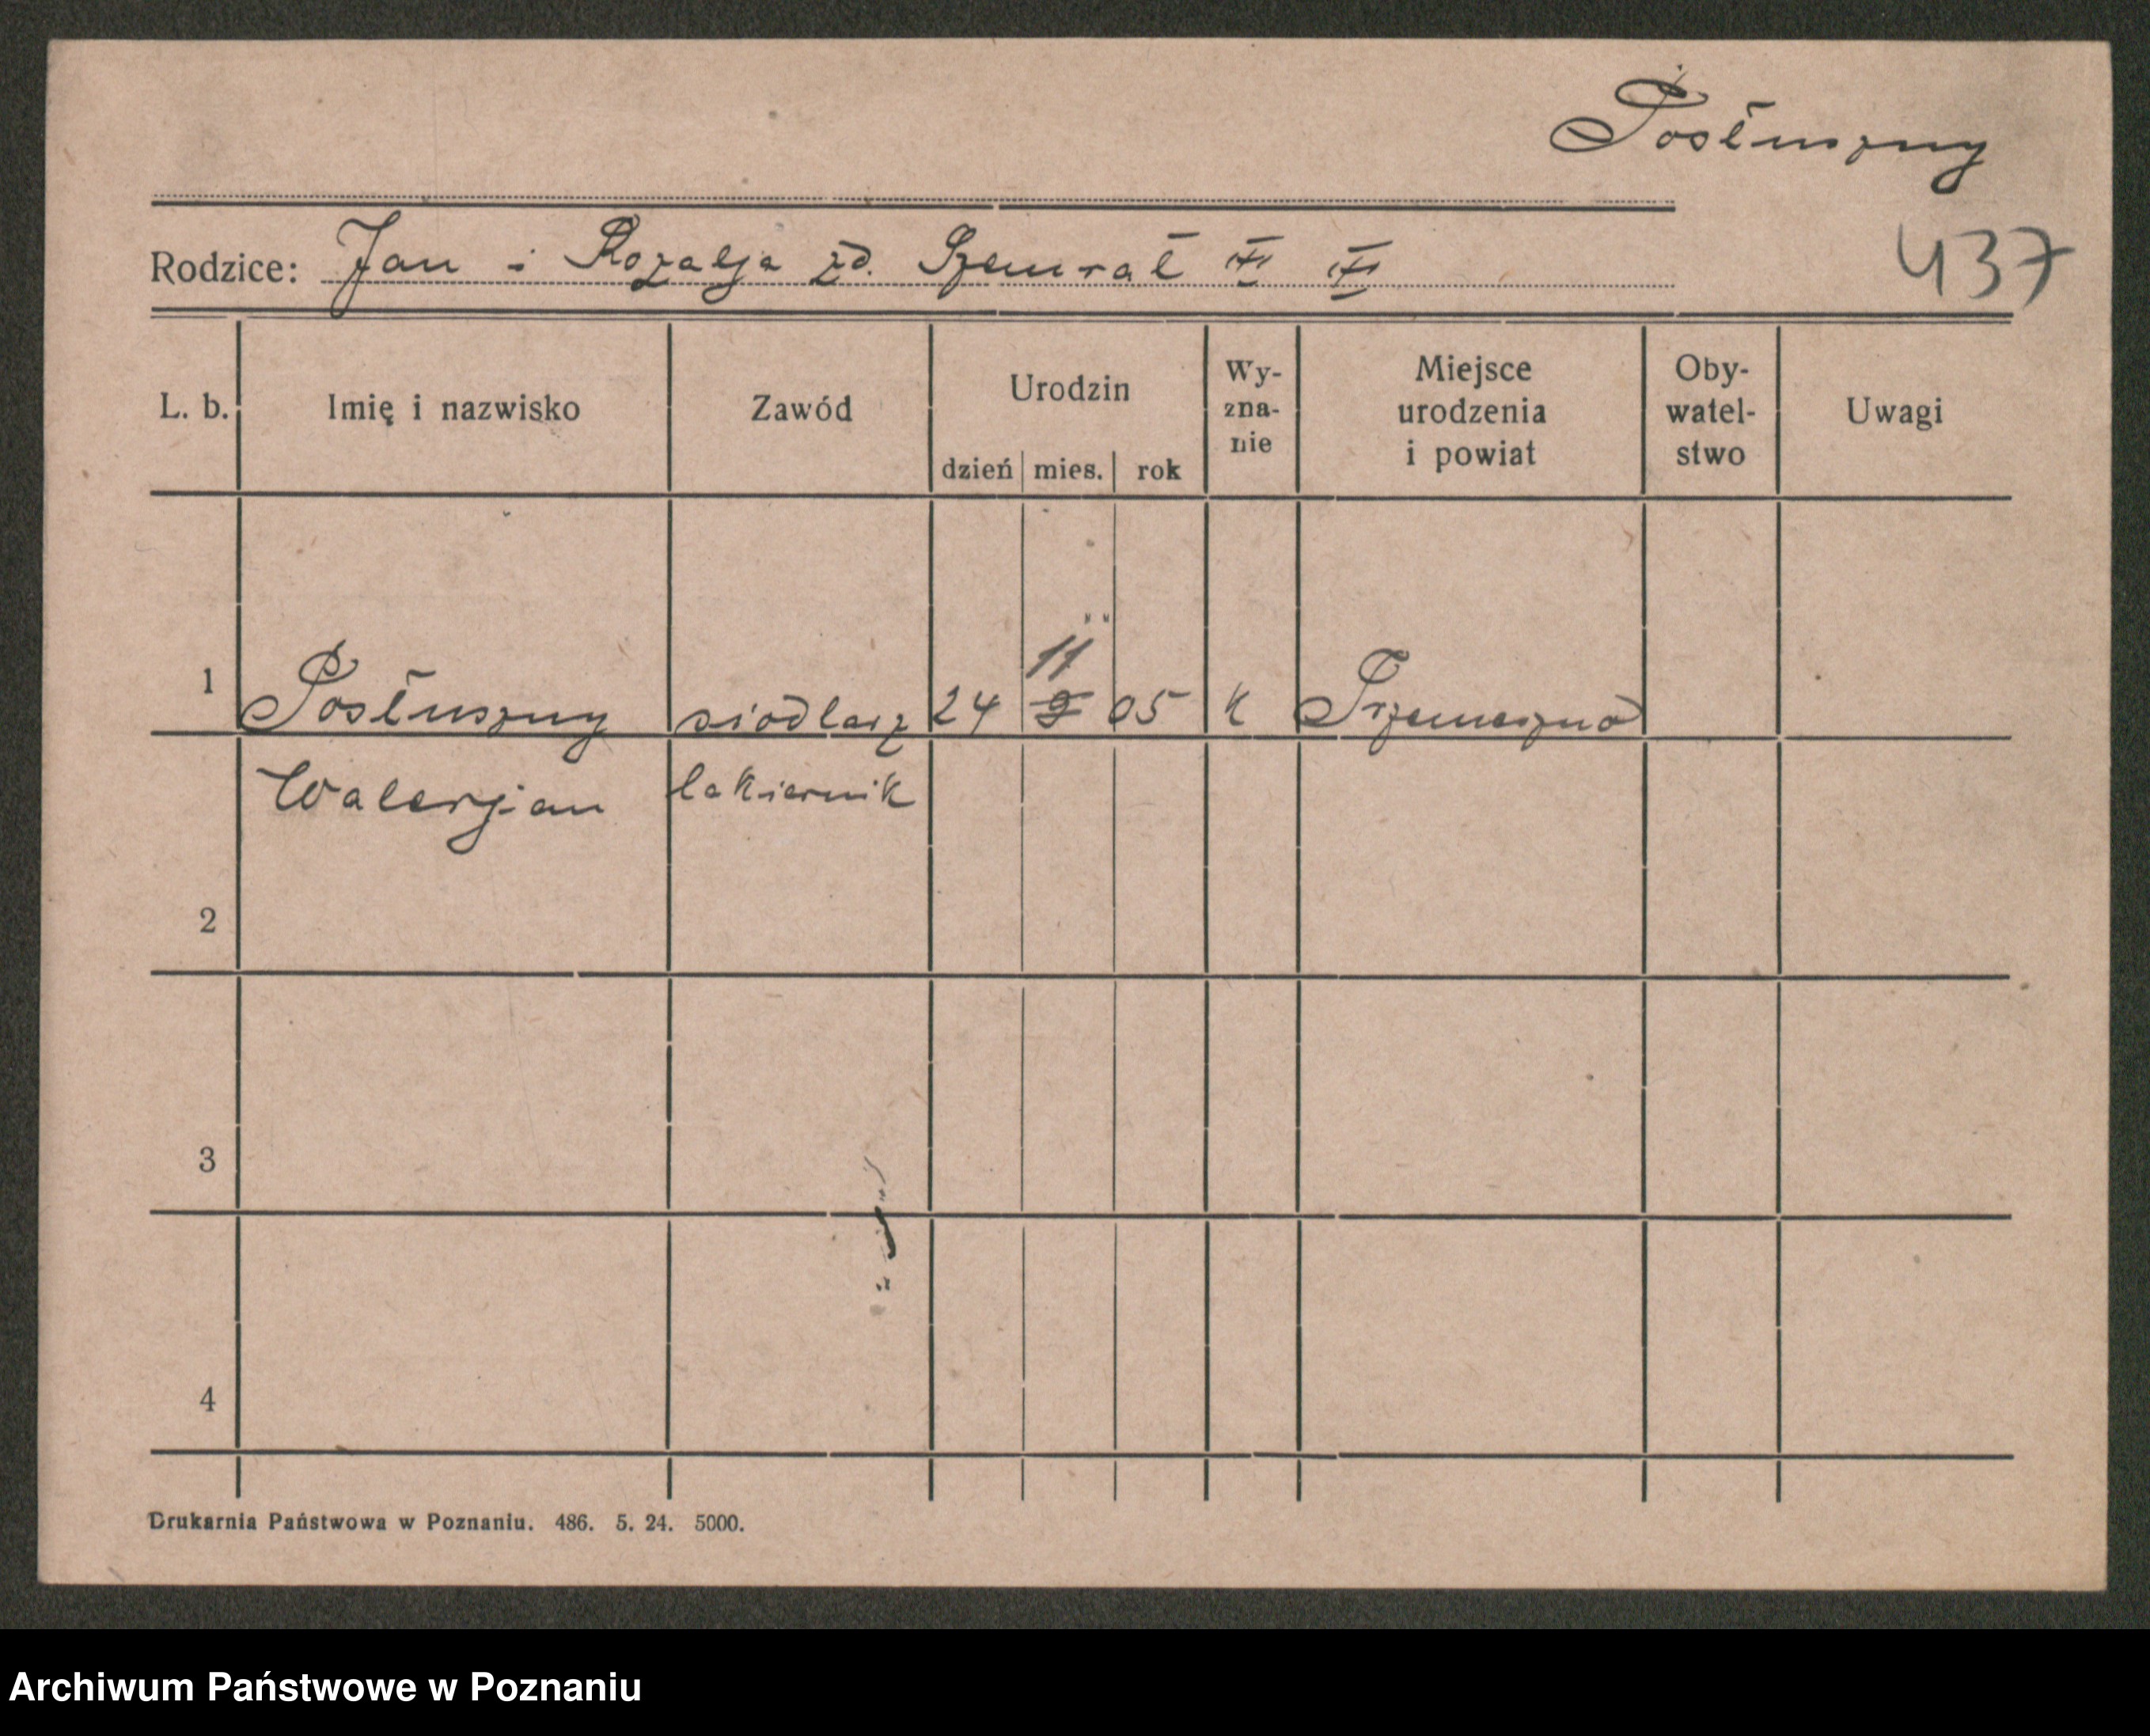 Posłuszny
Rodzice: Jan i Rozalja zd. Szemrał
437
L. b. Imię i nazwisko Zawód Urodzin dzień mies. rok Wy-zna-nie Miejsce urodzenia i powiat Oby-watel-stwo Uwagi
11
1 Posłuszny siodlarz 24 9 05 k Trzemeszno
Walerjan lakiernik
2
3
4
Drukarnia Państwowa w Poznaniu. 486. 5. 24. 5000.
Archiwum Państwowe w Poznaniu